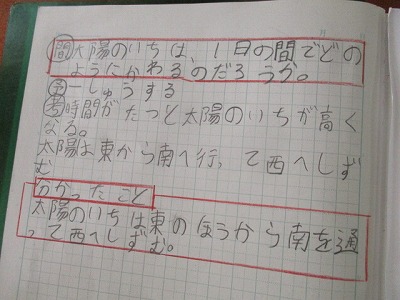 問 太陽のいちは、1日の間でどの
ようにかわるのだろうか。
予 一しゅうする
考 時間がたつと太陽のいちが高く
なる。
太陽は東から南へ行って西へしず
む
分かったこと
太陽のいちは東のほうから南を通
って西へしずむ。